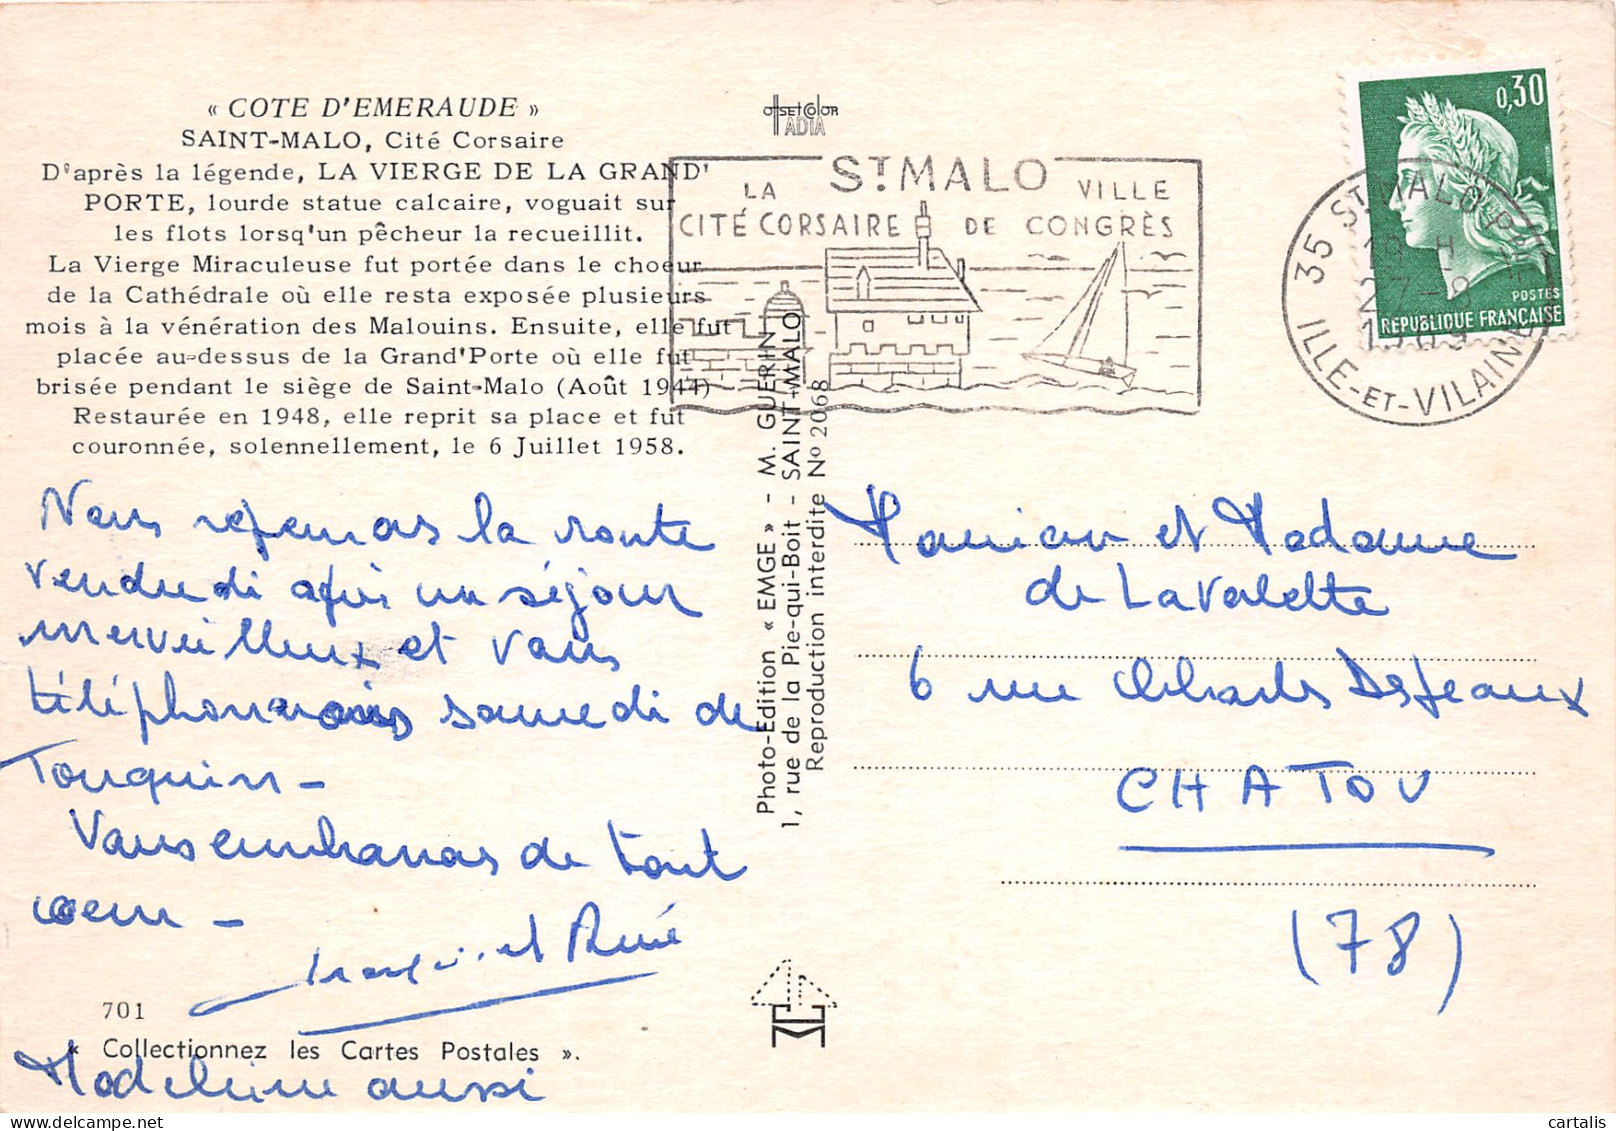 « COTE D'EMERAUDE »
SAINT-MALO, Cité Corsaire
D'après la légende, LA VIERGE DE LA GRAND'
PORTE, lourde statue calcaire, voguait sur
les flots lorsq'un pêcheur la recueillit.
La Vierge Miraculeuse fut portée dans le choeur
de la Cathédrale où elle resta exposée plusieurs
mois à la vénération des Malouins. Ensuite, elle fut
placée au-dessus de la Grand'Porte où elle fut
brisée pendant le siège de Saint-Malo (Août 1944)
Restaurée en 1948, elle reprit sa place et fut
couronnée, solennellement, le 6 Juillet 1958.
Nous reprenons la route
vendredi après un séjour
merveilleux et vous
téléphonerons samedi de
Touquin -
Vous embrassons de tout
coeur -
et René
701
« Collectionnez les Cartes Postales ».
Madeleine aussi
OFFSETCOLOR
IADIA
Photo-Edition « EMGE » - M. GUERIN
1, rue de la Pie-qui-Boit - SAINT-MALO
Reproduction interdite No 2068
ST MALO
LA CITÉ CORSAIRE
VILLE DE CONGRÈS
35 ST MALO PPAL
18 H
27-8
1969
ILLE-ET-VILAINE
0,30
POSTES
REPUBLIQUE FRANÇAISE
Monsieur et Madame
de Lavalette
6 rue Charles Desfeaux
CHATOU
(78)
cartalis